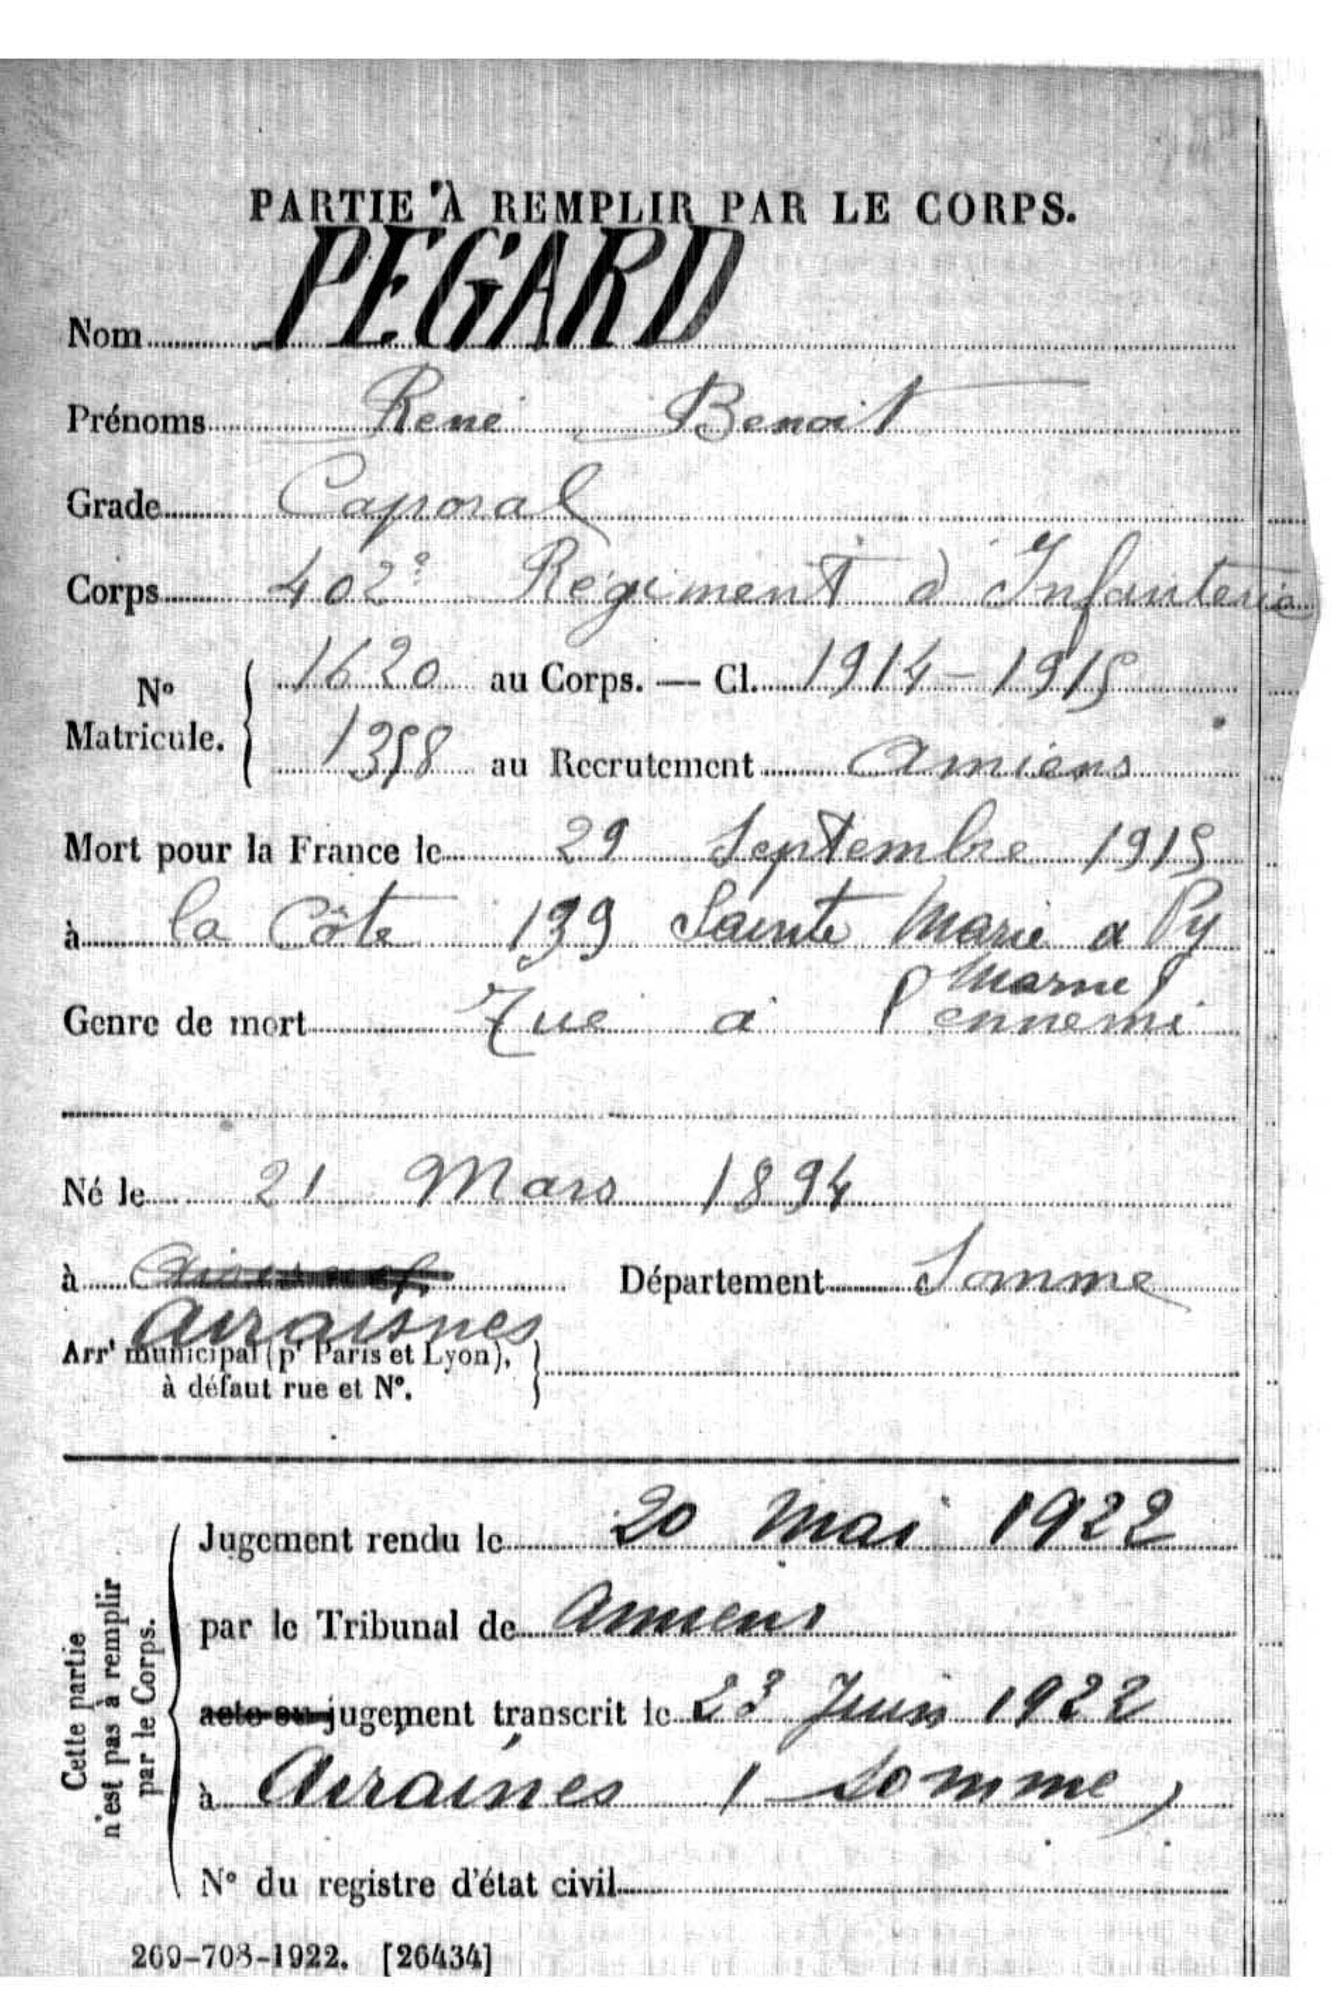 PARTIE À REMPLIR PAR LE CORPS.
Nom PEGARD
Prénoms René Benoit
Grade Caporal
Corps 402e Régiment d Infanterie
No Matricule. { 1620 au Corps. — Cl. 1914-1915
1358 au Recrutement Amiens
Mort pour la France le 29 Septembre 1915
à la Côte 139 Sainte Marie a Py
Marne
Genre de mort Tué a l'ennemi
Né le 21 Mars 1894
à Département Somme
Airaisnes
Arrt municipal (pr Paris et Lyon), }
à défaut rue et No.
Cette partie
n'est pas à remplir
par le Corps.
Jugement rendu le 20 Mai 1922
par le Tribunal de Amiens
acte ou jugement transcrit le 23 Juin 1922
à Airaines (Somme)
No du registre d'état civil
269-708-1922. [26434]